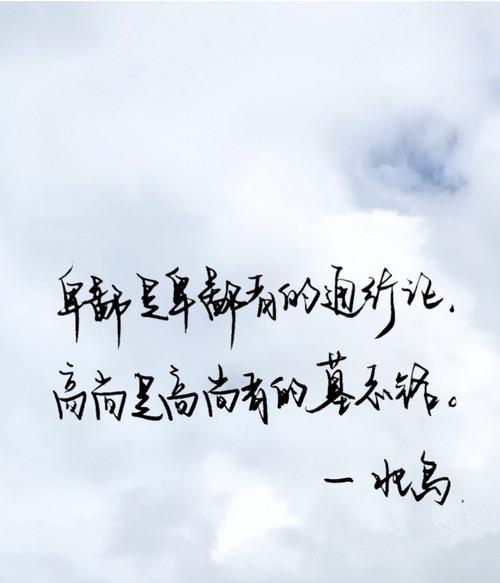 卑鄙是卑鄙者的通行证，
高尚是高尚者的墓志铭。
一北岛.